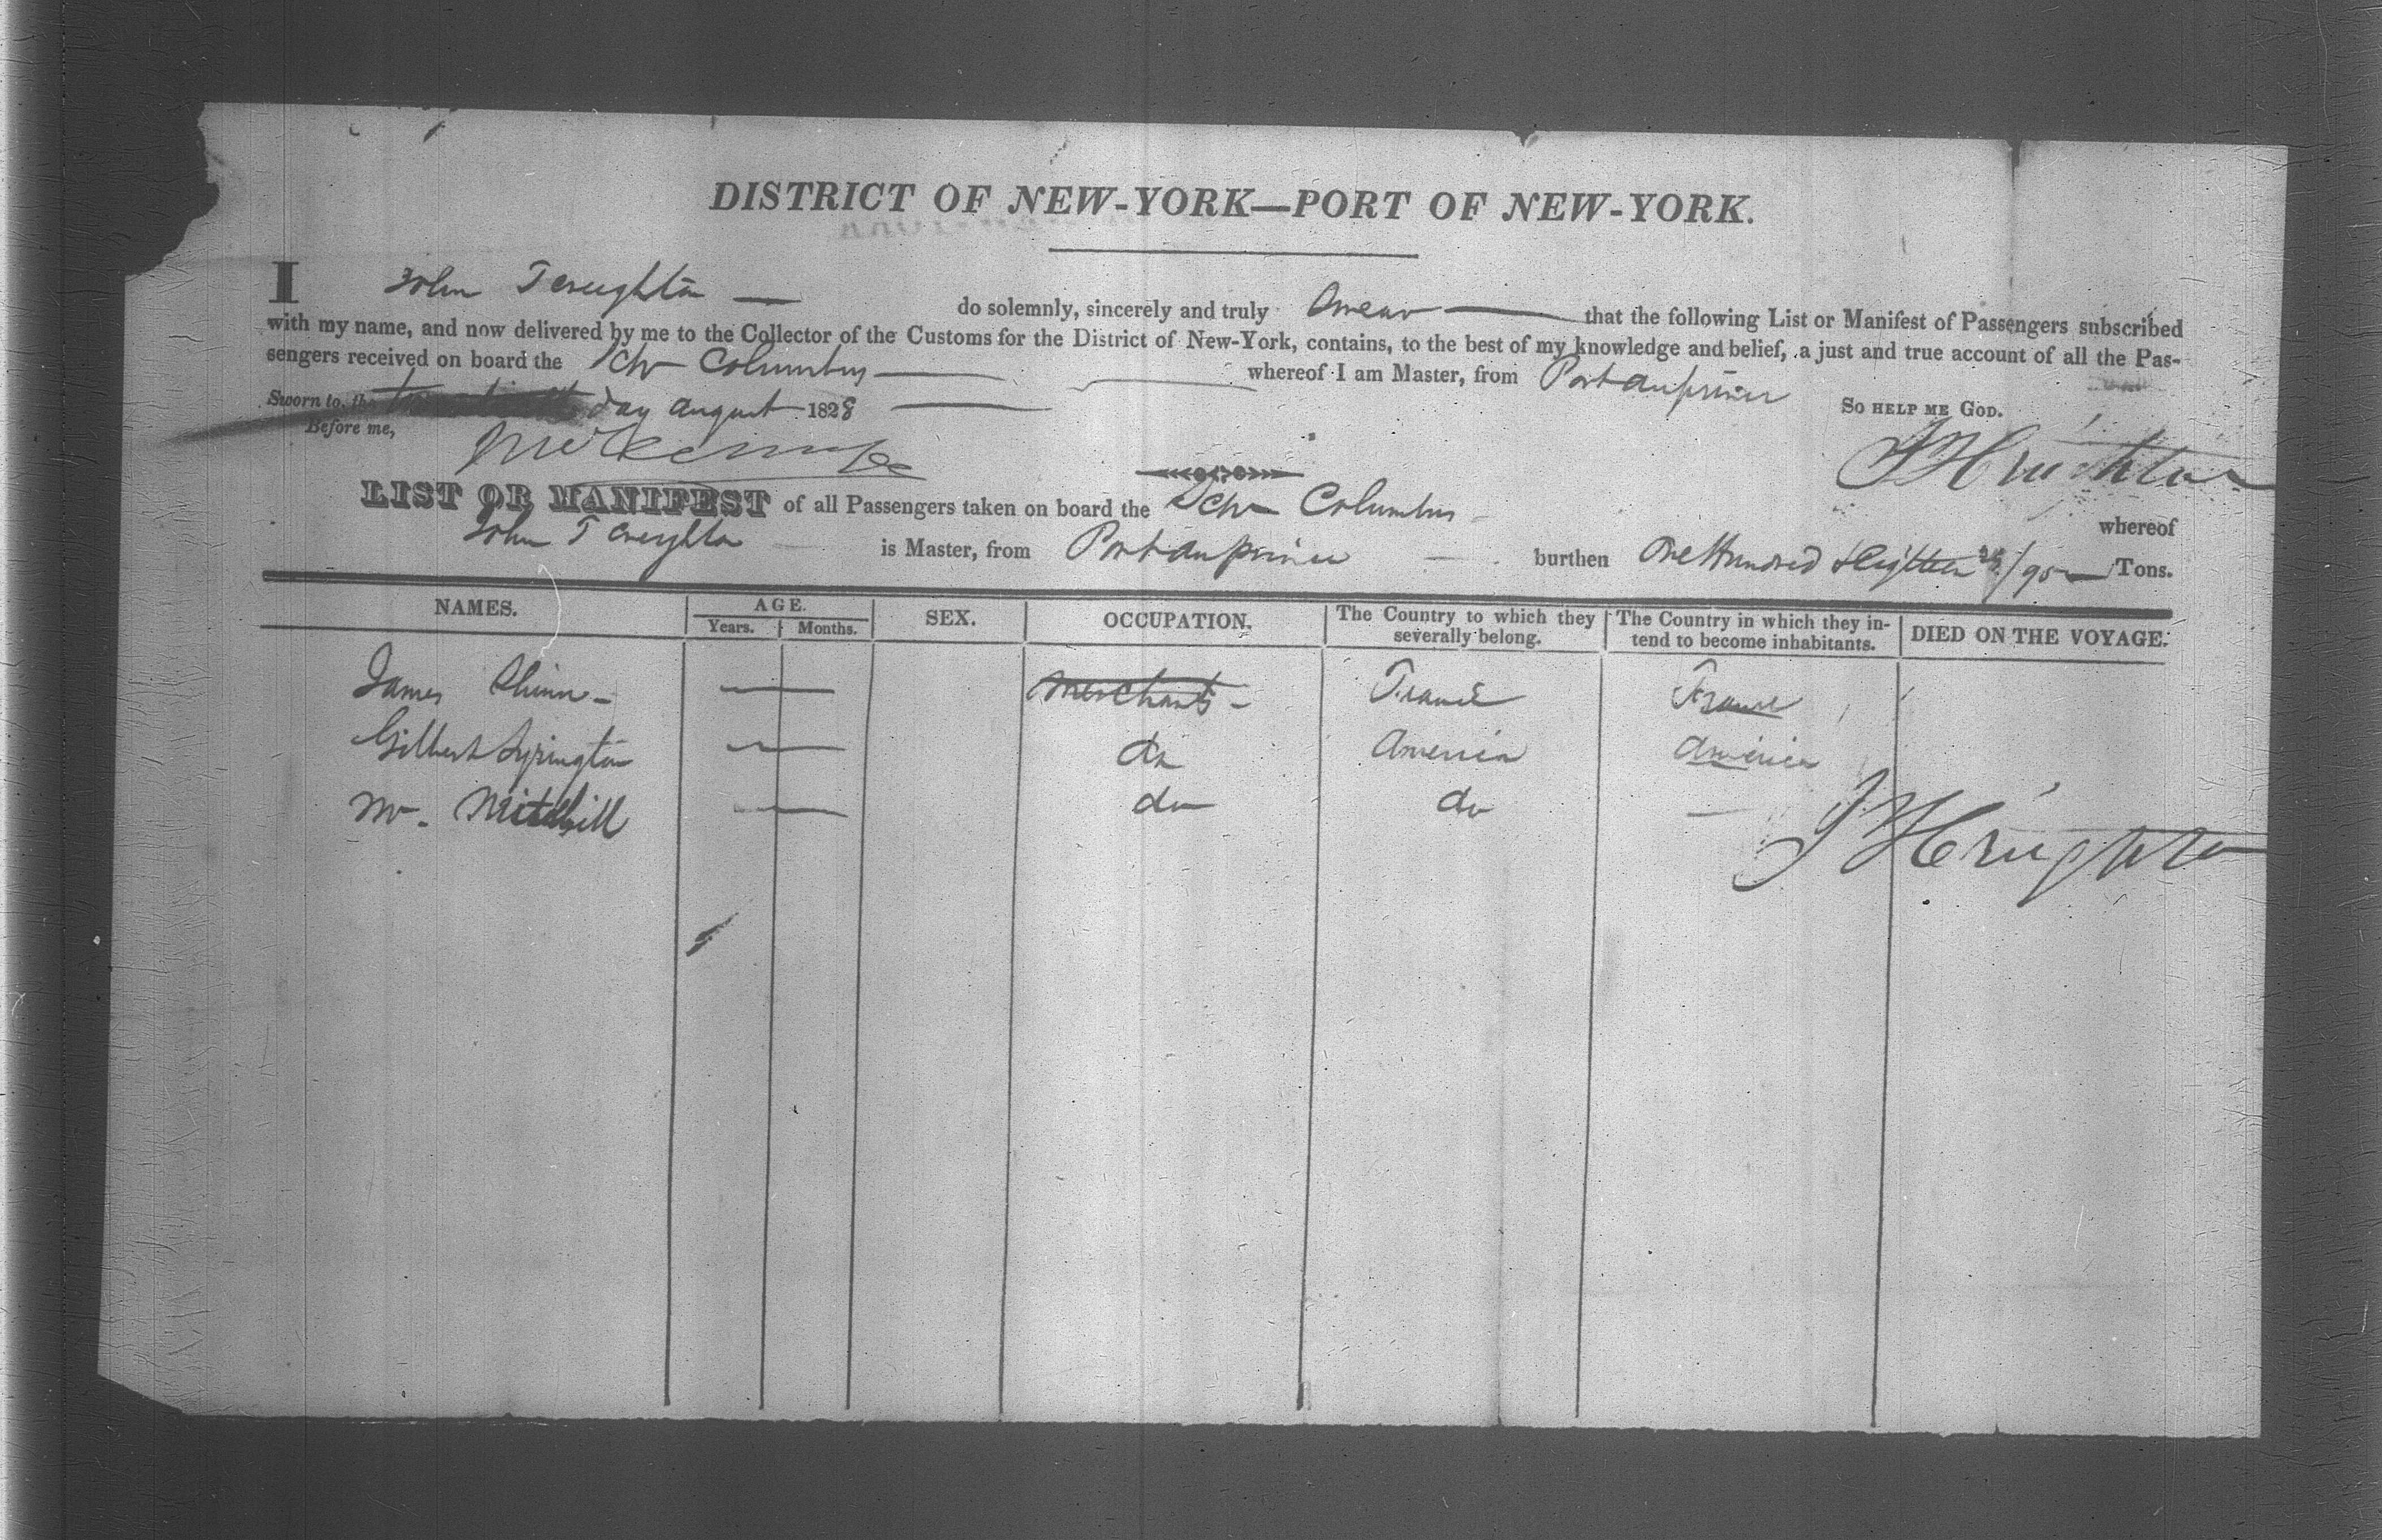 DISTRICT OF NEW-YORK—PORT OF NEW-YORK.
I John T Creighton — do solemnly, sincerely and truly Swear — that the following List or Manifest of Passengers subscribed
with my name, and now delivered by me to the Collector of the Customs for the District of New-York, contains, to the best of my knowledge and belief, a just and true account of all the Pas-
sengers received on board the Schr Columbus — whereof I am Master, from Port au prince
Sworn to, the day August 1828 — SO HELP ME GOD.
Before me,
LIST OR MANIFEST of all Passengers taken on board the Schr Columbus whereof
John T Creighton is Master, from Port au prince burthen One Hundred & Eighteen /95 — Tons.
NAMES. AGE. SEX. OCCUPATION. The Country to which they severally belong. The Country in which they in-tend to become inhabitants. DIED ON THE VOYAGE.
Years. Months.
James — Merchants - France France
Gilbert — do America America
Mr. Mitchill — do do —
J T Creighton